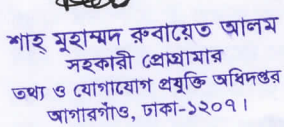 শাহ্ মুহাম্মদ রুবায়েত আলম
সহকারী প্রোগ্রামার
তথ্য ও যোগাযোগ প্রযুক্তি অধিদপ্তর
আগারগাঁও, ঢাকা-১২০৭।